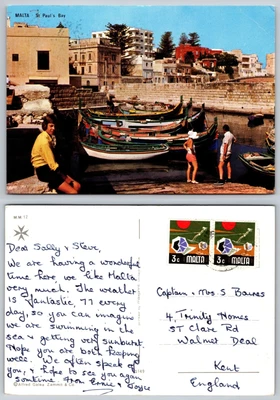 MALTA St Paul's Bay
MM 17
Dear Sally & Steve,
We are having a wonderful
time here, we like Malta
very much. The weather
is fantastic, 77 every
day, so you can imagine
we are swimming in the
sea & getting very sunburnt.
Hope you are both keeping
well. We often speak of
you, & hope to see you again
sometime. From Ernie & Joyce
3c MALTA
3c MALTA
Captain & Mrs S Barnes
4, Trinity Homes
St Clare Rd
Walmer Deal
Kent
England